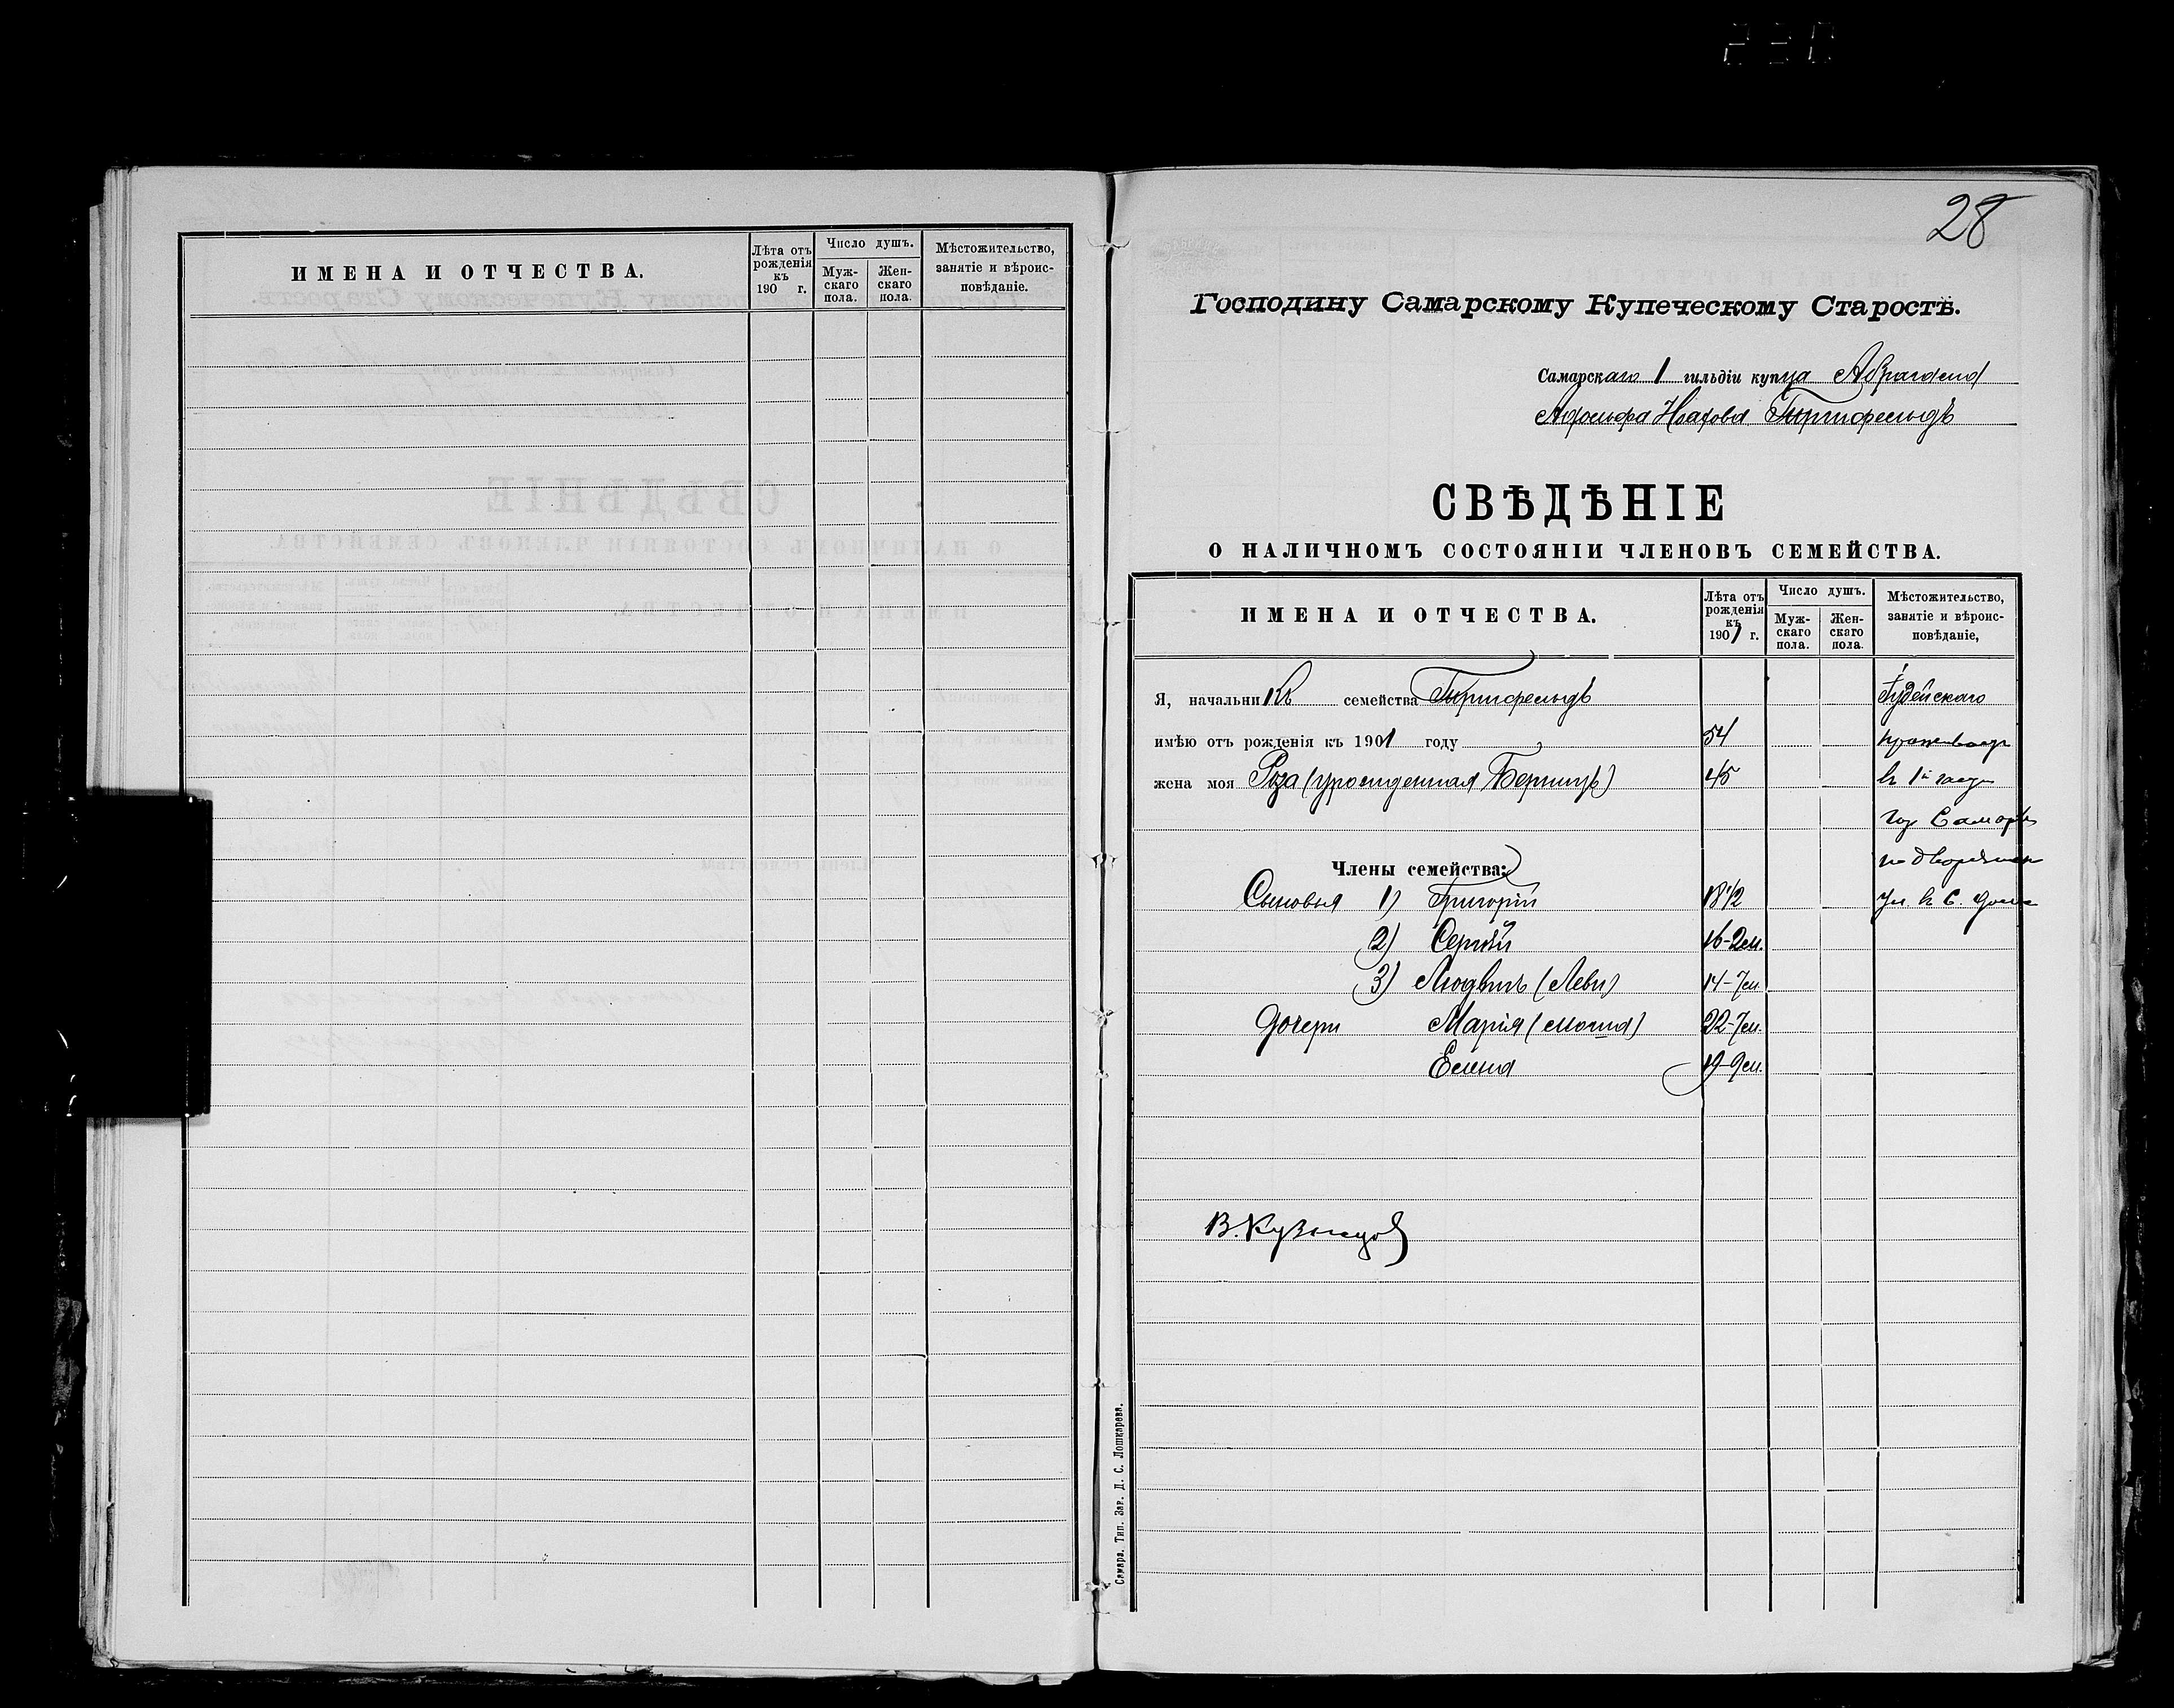 ИМЕНА И ОТЧЕСТВА.
Лѣта отъ рожденія къ 190 г.
Число душъ.
Муж-скаго пола.
Жен-скаго пола.
Мѣстожительство, занятіе и вѣроис-повѣданіе.
28
Господину Самарскому Купеческому Старостѣ.
Самарскаго 1 гильдіи купца Абрагама
Адольфа Гиршфельдъ
СВѢДѢНІЕ
О НАЛИЧНОМЪ СОСТОЯНІИ ЧЛЕНОВЪ СЕМЕЙСТВА.
ИМЕНА И ОТЧЕСТВА.
Лѣта отъ рожденія къ 1901 г.
Число душъ.
Муж-скаго пола.
Жен-скаго пола.
Мѣстожительство, занятіе и вѣроис-повѣданіе,
Я, начальникъ семейства Гиршфельдъ Іудейскаго
имѣю отъ рожденія къ 1901 году 54
жена моя Роза (урожденная) 45 въ 1й
гор Самары
Члены семейства: по дворянск
Сыновья 1) Григорій 18 1/2 ул. въ С. домѣ
2) Сергѣй 16-2м.
3) Людвигъ (Леви) 14-7м.
Дочери Марія 22-7м.
Елена 19-9м.
В. Кузнецов
Самара. Тип. Зав. Д. С. Лошкарева.